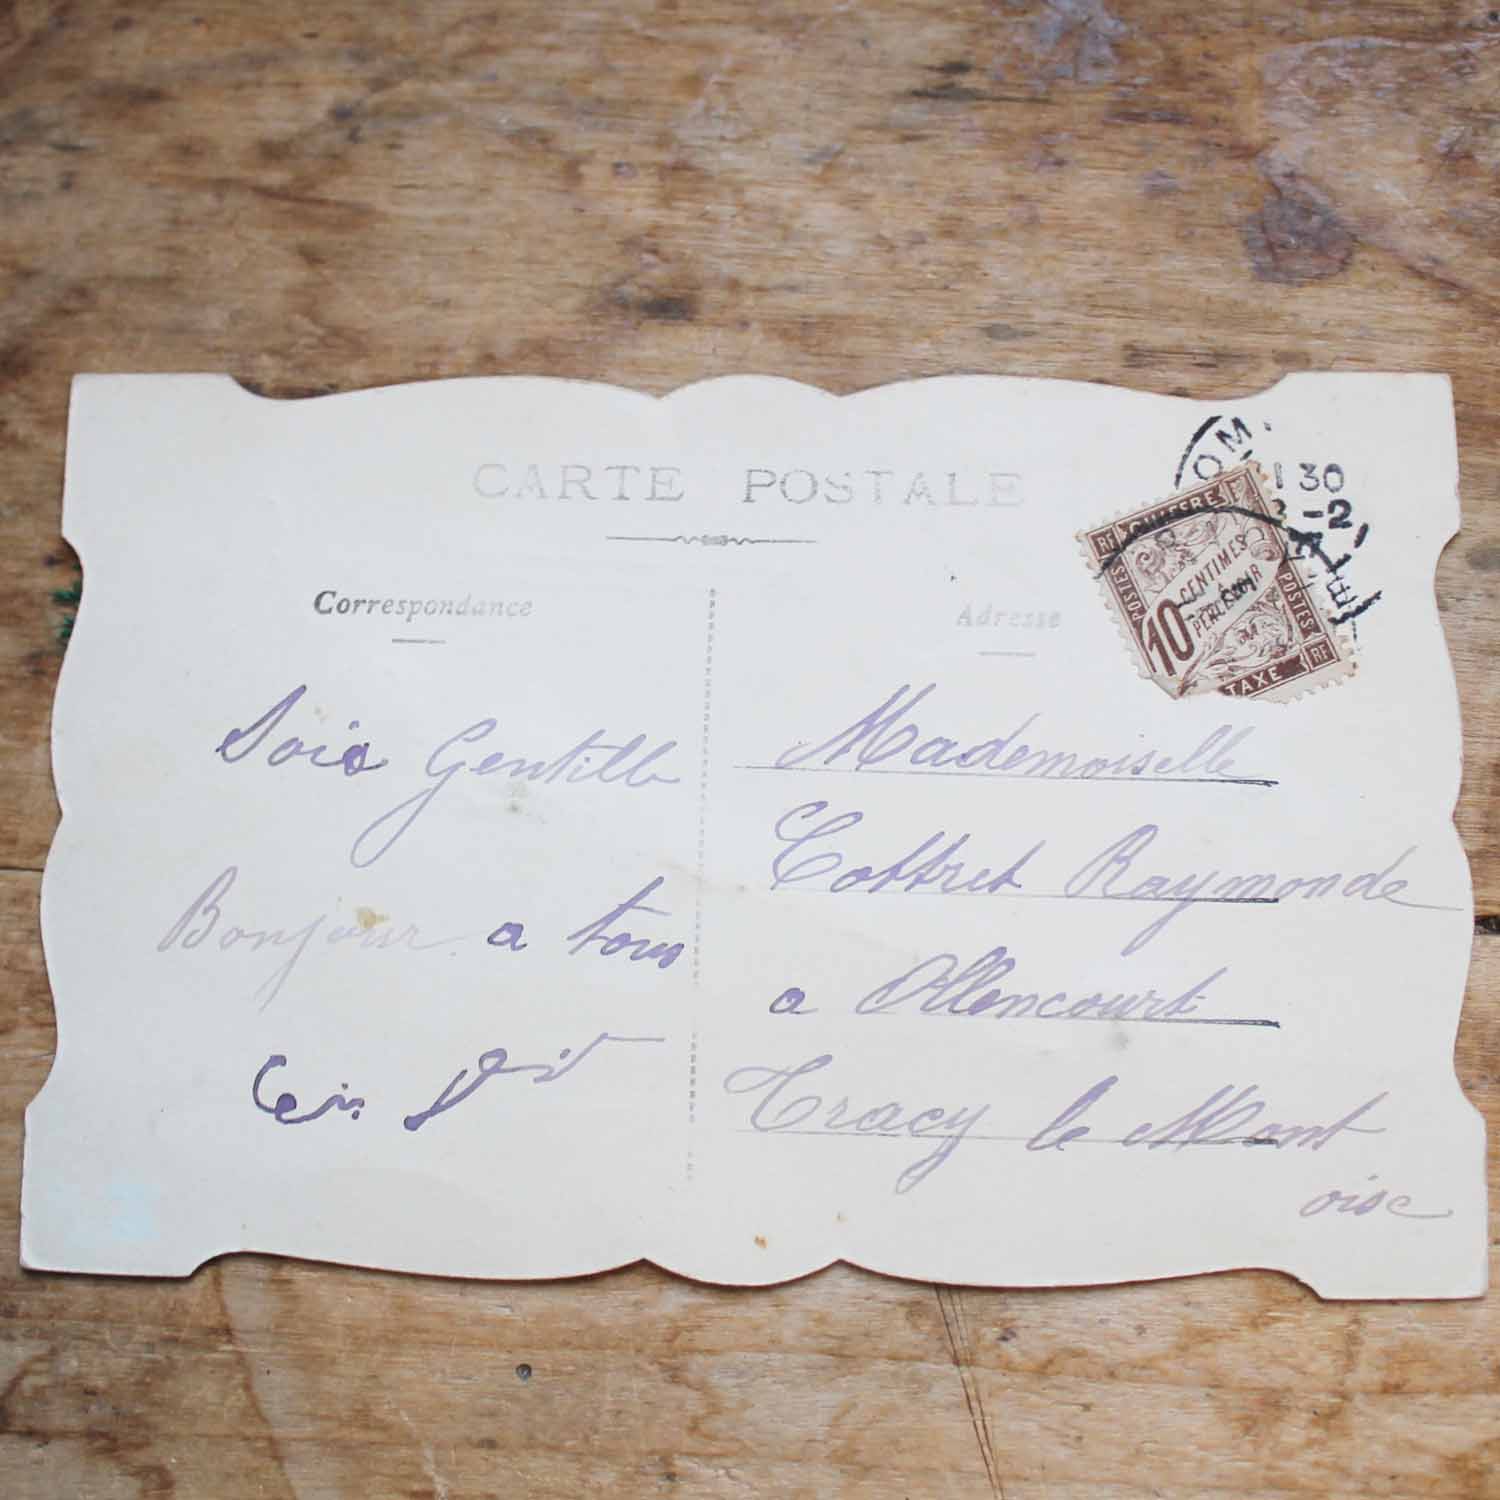 CARTE POSTALE
Correspondance
Adresse
OM
1 30
-2
RF CHIFFRE
POSTES
10 CENTIMES
A PERCEVOIR
POSTES
TAXE RF
Sois Gentille
Bonjour a tous
Mademoiselle
Cottret Raymonde
a Ollencourt
Tracy le Mont
oise